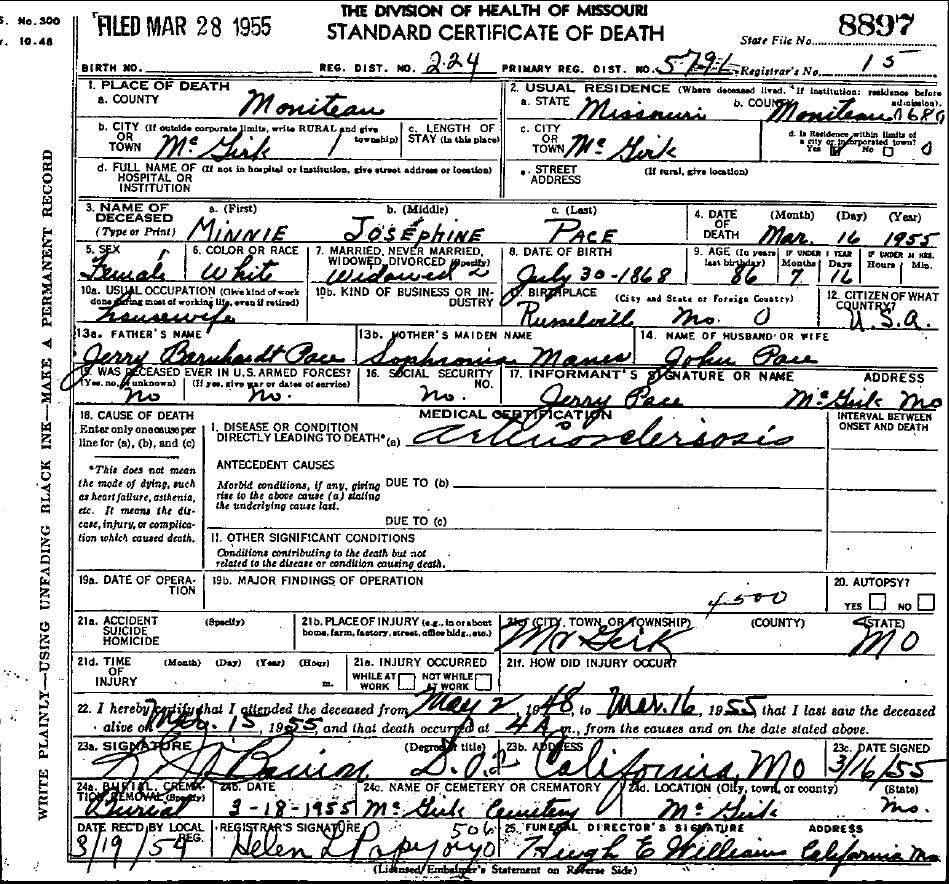 S. No. 300
r. 10-48
FILED MAR 28 1955
THE DIVISION OF HEALTH OF MISSOURI
STANDARD CERTIFICATE OF DEATH
8897
State File No.
BIRTH NO. REG. DIST. NO. 224 PRIMARY REG. DIST. NO. Registrar's No. 15
1. PLACE OF DEATH
a. COUNTY Moniteau
2. USUAL RESIDENCE (Where deceased lived. If institution: residence before admission).
a. STATE Missouri b. COUNTY Moniteau
b. CITY OR TOWN (If outside corporate limits, write RURAL and give township) Mc Girk
c. LENGTH OF STAY (in this place)
c. CITY OR TOWN Mc Girk
d. Is Residence within limits of a city or incorporated town? Yes No 0
d. FULL NAME OF HOSPITAL OR INSTITUTION (If not in hospital or institution, give street address or location)
e. STREET ADDRESS (If rural, give location)
3. NAME OF DECEASED (Type or Print)
a. (First) MINNIE b. (Middle) JOSEPHINE c. (Last) PACE
4. DATE OF DEATH (Month) (Day) (Year) Mar. 16 1955
5. SEX Female
6. COLOR OR RACE White
7. MARRIED, NEVER MARRIED, WIDOWED, DIVORCED (Specify) Widowed 2
8. DATE OF BIRTH July 30-1868
9. AGE (In years last birthday) 86 IF UNDER 1 YEAR Months 7 Days 16 IF UNDER 24 HRS. Hours Min.
10a. USUAL OCCUPATION (Give kind of work done during most of working life, even if retired) Housewife
10b. KIND OF BUSINESS OR INDUSTRY
11. BIRTHPLACE (City and State or Foreign Country) Russelville Mo. 0
12. CITIZEN OF WHAT COUNTRY? U.S.A.
13a. FATHER'S NAME Jerry Barnhardt Pace
13b. MOTHER'S MAIDEN NAME Sophronia Manes
14. NAME OF HUSBAND OR WIFE John Pace
15. WAS DECEASED EVER IN U.S. ARMED FORCES? (Yes, no, or unknown) (If yes, give war or dates of service) no no.
16. SOCIAL SECURITY NO. no.
17. INFORMANT'S SIGNATURE OR NAME ADDRESS Jerry Pace Mc Girk Mo
18. CAUSE OF DEATH
Enter only one cause per line for (a), (b), and (c)
*This does not mean the mode of dying, such as heart failure, asthenia, etc. It means the disease, injury, or complication which caused death.
MEDICAL CERTIFICATION
I. DISEASE OR CONDITION DIRECTLY LEADING TO DEATH* (a) Arteriosclerosis
INTERVAL BETWEEN ONSET AND DEATH
ANTECEDENT CAUSES
Morbid conditions, if any, giving rise to the above cause (a) stating the underlying cause last.
DUE TO (b)
DUE TO (c)
II. OTHER SIGNIFICANT CONDITIONS
Conditions contributing to the death but not related to the disease or condition causing death.
19a. DATE OF OPERATION
19b. MAJOR FINDINGS OF OPERATION
4500
20. AUTOPSY? YES NO
21a. ACCIDENT SUICIDE HOMICIDE (Specify)
21b. PLACE OF INJURY (e.g., in or about home, farm, factory, street, office bldg., etc.)
21c. (CITY, TOWN, OR TOWNSHIP) (COUNTY) (STATE)
Mc Girk MO
21d. TIME OF INJURY (Month) (Day) (Year) (Hour) m.
21e. INJURY OCCURRED WHILE AT WORK NOT WHILE AT WORK
21f. HOW DID INJURY OCCUR?
22. I hereby certify that I attended the deceased from May 2, 1948, to Mar. 16, 1955, that I last saw the deceased
alive on Mar. 15, 1955, and that death occurred at 4 A m., from the causes and on the date stated above.
23a. SIGNATURE (Degree or title) D.O.
23b. ADDRESS California, Mo
23c. DATE SIGNED 3/16/55
24a. BURIAL, CREMATION, REMOVAL (Specify) Burial
24b. DATE 3-18-1955
24c. NAME OF CEMETERY OR CREMATORY Mc Girk Cemetery
24d. LOCATION (City, town, or county) (State) Mc Girk Mo.
DATE REC'D BY LOCAL REG. 3/19/54
REGISTRAR'S SIGNATURE Helen L 506
25. FUNERAL DIRECTOR'S SIGNATURE ADDRESS Hugh E Williams California Mo
(Licensed Embalmer's Statement on Reverse Side)
WRITE PLAINLY—USING UNFADING BLACK INK—MAKE A PERMANENT RECORD